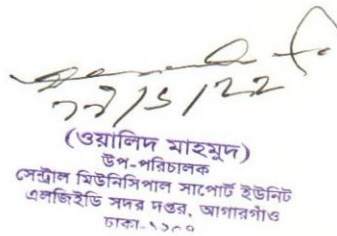 (ওয়ালিদ মাহমুদ)
উপ-পরিচালক
সেন্ট্রাল মিউনিসিপাল সাপোর্ট ইউনিট
এলজিইডি সদর দপ্তর, আগারগাঁও
ঢাকা-